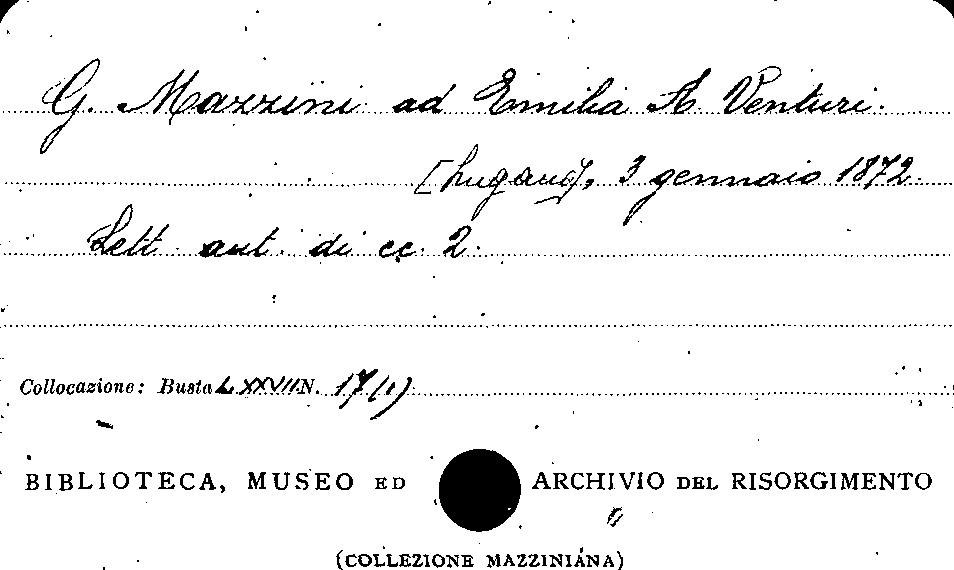 G. Mazzini ad Emilia A. Venturi.
[Lugano], 3 gennaio 1872.
Lett. aut. di cc. 2.
Collocazione: Busta LXXVII N. 17(1)
BIBLIOTECA, MUSEO ED ARCHIVIO DEL RISORGIMENTO
(COLLEZIONE MAZZINIANA)